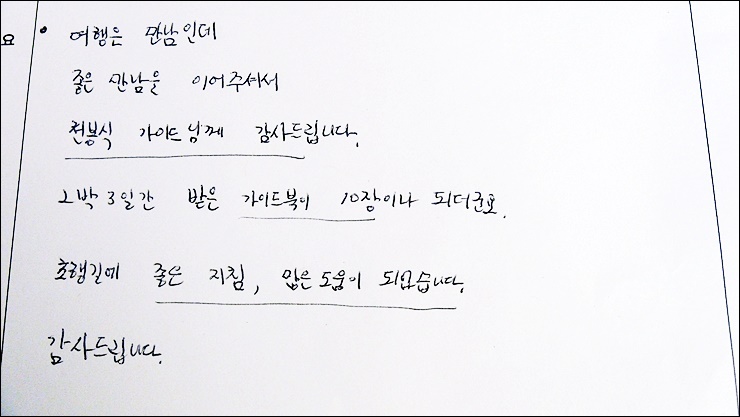 요 • 여행은 만남인데
좋은 만남을 이어주셔서
전봉식 가이드님께 감사드립니다.
2박3일간 받은 가이드북이 10장이나 되더군요.
초행길에 좋은 지침, 많은 도움이 되었습니다.
감사드립니다.